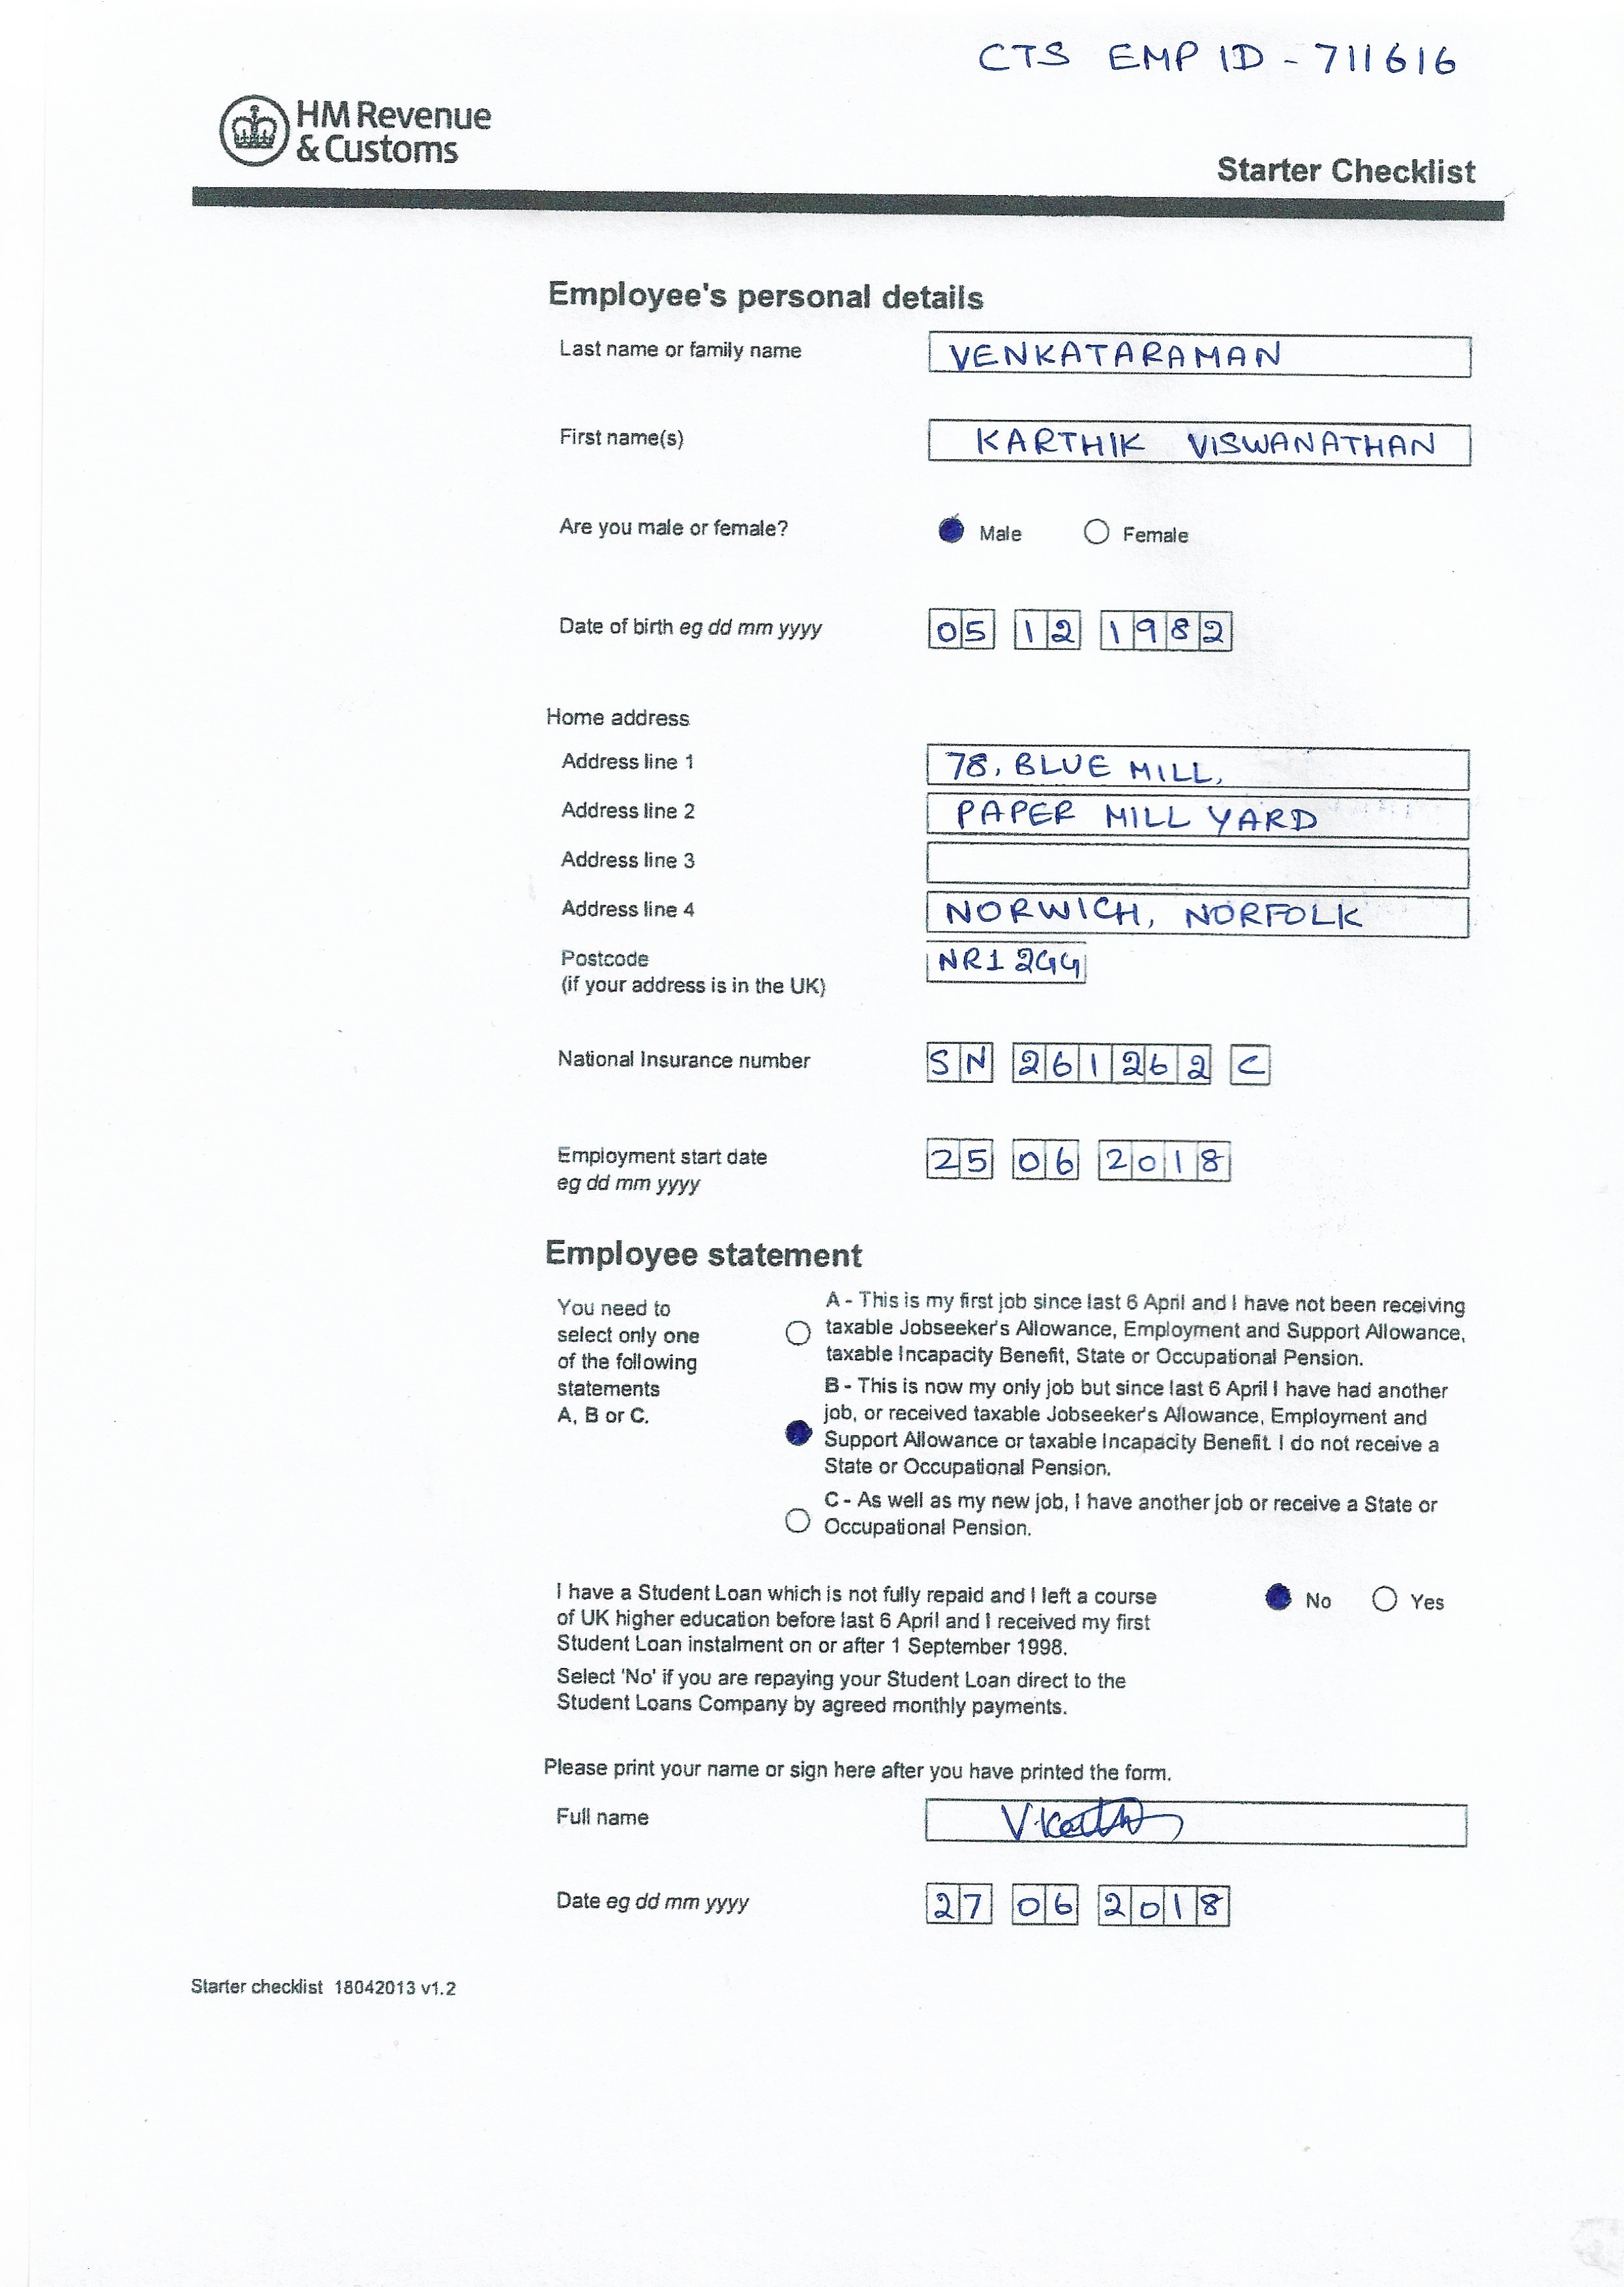 CTS EMP ID - 711616
HM Revenue
& Customs
Starter Checklist
Employee's personal details
Last name or family name VENKATARAMAN
First name(s) KARTHIK VISWANATHAN
Are you male or female? Male Female
Date of birth eg dd mm yyyy 05 12 1982
Home address
Address line 1 78, BLUE MILL,
Address line 2 PAPER MILL YARD
Address line 3
Address line 4 NORWICH, NORFOLK
Postcode NR1 2GG
(if your address is in the UK)
National Insurance number SN 261262 C
Employment start date 25 06 2018
eg dd mm yyyy
Employee statement
You need to
select only one
of the following
statements
A, B or C.
A - This is my first job since last 6 April and I have not been receiving
taxable Jobseeker's Allowance, Employment and Support Allowance,
taxable Incapacity Benefit, State or Occupational Pension.
B - This is now my only job but since last 6 April I have had another
job, or received taxable Jobseeker's Allowance, Employment and
Support Allowance or taxable Incapacity Benefit. I do not receive a
State or Occupational Pension.
C - As well as my new job, I have another job or receive a State or
Occupational Pension.
I have a Student Loan which is not fully repaid and I left a course
of UK higher education before last 6 April and I received my first
Student Loan instalment on or after 1 September 1998.
No Yes
Select 'No' if you are repaying your Student Loan direct to the
Student Loans Company by agreed monthly payments.
Please print your name or sign here after you have printed the form.
Full name
Date eg dd mm yyyy 27 06 2018
Starter checklist 18042013 v1.2